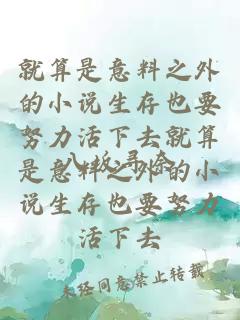 就算是意料之外
的小说生存也要
努力活下去就算
是意料之外的小
说生存也要努力
活下去
未经同意禁止转载